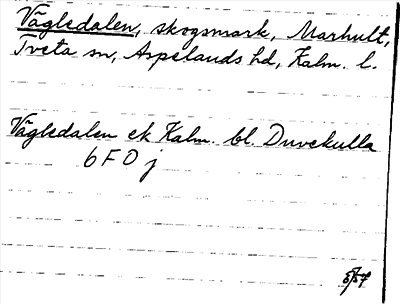 Vägledalen, skogsmark, Marhult,
Tveta sn, Aspelands hd, Kalm. l.
Vägledalen ek Kalm. bl. Duvekulla
6 F 0 j
5/57